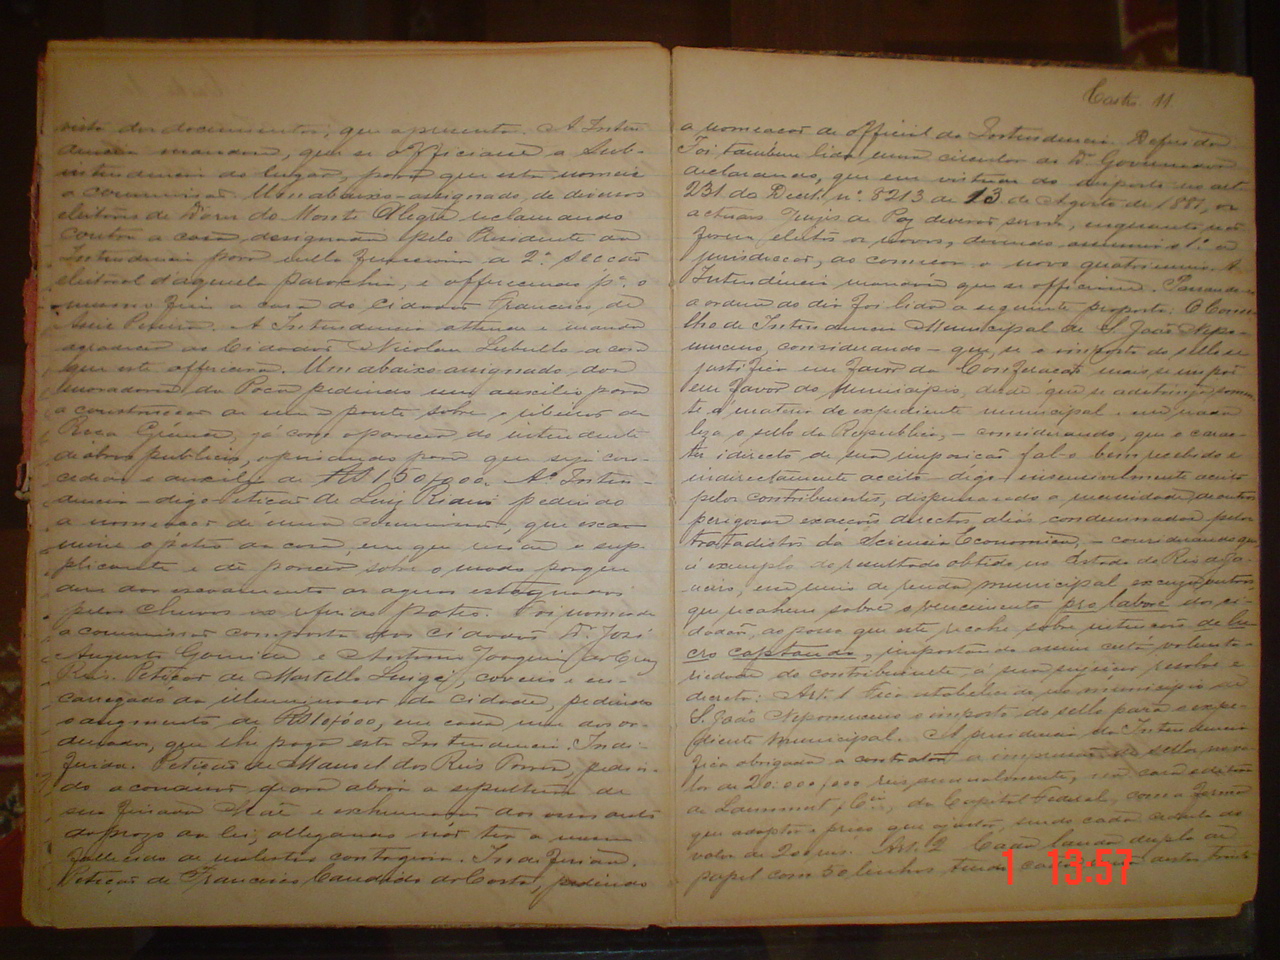 vista dos documentos, que apresenta. A Inten-
dencia mandou, que se officiasse a Sub-
intendencia do lugar, para que esta nomeie
a commissão. Um abaixo-assignado, de diversos
eleitores de Bom do Monte Alegre reclamando
contra a casa designada pelo Presidente da
Intendencia para nella funccionar a 2ª secção
eleitoral d'aquela parochia, e offerecendo pª. o
mesmo fim a casa do Cidadão Francisco de
Assis Pereira. A Intendencia attende e manda
agradecer ao Cidadão Nicolau a casa
que este offerecera. Um abaixo-assignado dos
moradores da Roça pedindo um auxilio para
a construcção de uma ponte sobre o ribeirão da
Roça Grande, já com o parecer do intendente
de obras publicas, opinando para que seja con-
cedido o auxilio de 150$000. A Inten-
dencia - digo Petição de Luiz pedindo
a nomeação de uma commissão, que exa-
mine o páteo da casa, em que reside o sup-
plicante e dê parecer sobre o modo porque
deve dar escoamento as aguas estagnadas
pelas chuvas no referido pateo. Foi nomeada
a commissão composta dos cidadãos Dr. José
Augusto Gouvêa e Antonio Joaquim da Cruz
Reis. Petição de Martello Luigi, coveiro e en-
carregado da illuminação da cidade, pedindo
o augmento de 10$000, em cada um dos or-
denados, que lhe paga esta Intendencia. Inde-
ferida. Petição de Manoel dos Reis, pedin-
do a concessão para abrir a sepultura de
sua finada Mãe e exhumação dos ossos antes
do prazo da lei, allegando não ter a mesma
fallecido de molestia contagiosa. Indeferida.
Petição de Francisco Candido da Costa, pedindo
Castro. 11.
a nomeação de official da Intendencia. Deferida.
Foi tambem lida uma circular do Dr. Governador
declarando, que em virtude do disposto no art.
231 do Decrt. nº. 8213 de 13 de Agosto de 1881, os
actuaes Juizes de Paz devem servir, enquanto não
forem eleitos os novos, devendo assumir o 1º a
jurisdicção, ao começar o novo quatriennio. A
Intendencia mandou que se officiasse. Passando-se
a ordem do dia foi lida a seguinte proposta: O Conse-
lho de Intendencia Municipal de S. João Nepo-
muceno, considerando - que, se o imposto do sello se
justifica em favor da Confederação mais se impõe
em favor do Municipio, desde que se adstrinja somen-
te a materia de expediente municipal, em nada
lesa o sello da Republica, - considerando, que o carac-
ter indirecto de sua imposição fal-o bem recebido e
indirectamente acceito - digo insensivelmente acceito
pelos contribuintes, dispensando a necessidade de outras
perigosas exacções directas, aliás condemnadas pelos
tratadistas da Sciencia Economica, - considerando que
á exemplo do resultado obtido no Estado do Rio de Ja-
neiro, em meio de renda municipal exceptuados
que recahem sobre o vencimento pro labore dos ci-
dadãos, ao passo que este recahe sobre intenções de lu-
cro captando, importando assim certa volunta-
riedade do contribuinte, á sua sujeição resolve e
decreta: Art. 1 Fica estabelecido no municipio de
S. João Nepomuceno o imposto do sello para o expe-
diente Municipal. A presidencia da Intendencia
fica obrigada a contratar a impressão do sello no va-
lor de 20:000$000 reis, annualmente, na casa editora
de Laemmert, Cia, da Capital Federal, com a forma
que adoptar e preço que ajustar, sendo cada cedula do
valor de 200 reis. Art. 2 Cada lauda dupla de
papel com 50 linhas, tendo cada
1 13:57